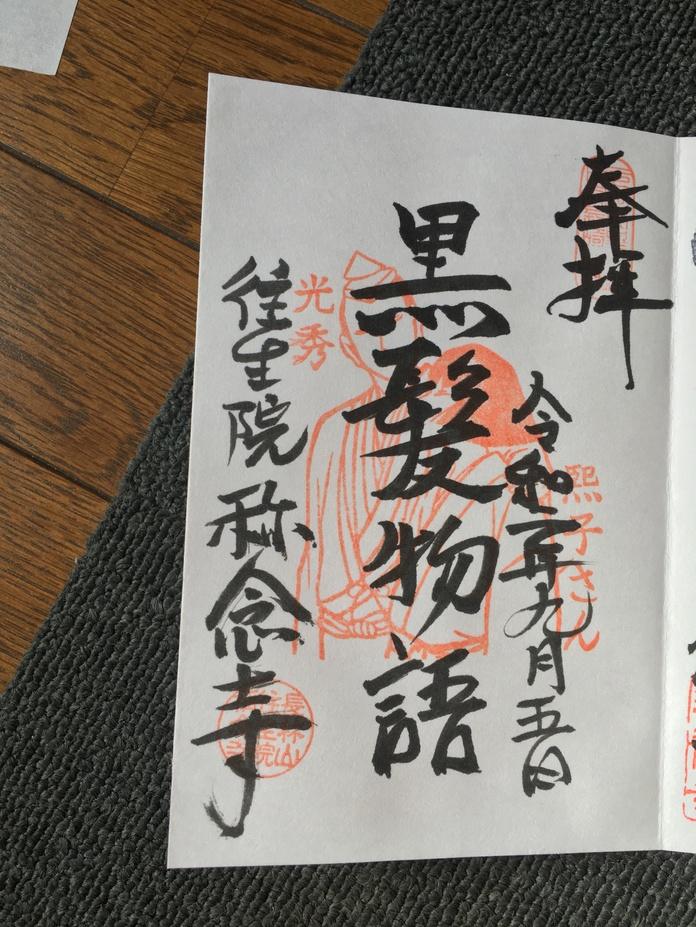 奉拝
令和二年九月五日
熙子さん
黒髪物語
光秀
往生院 称念寺
長林山